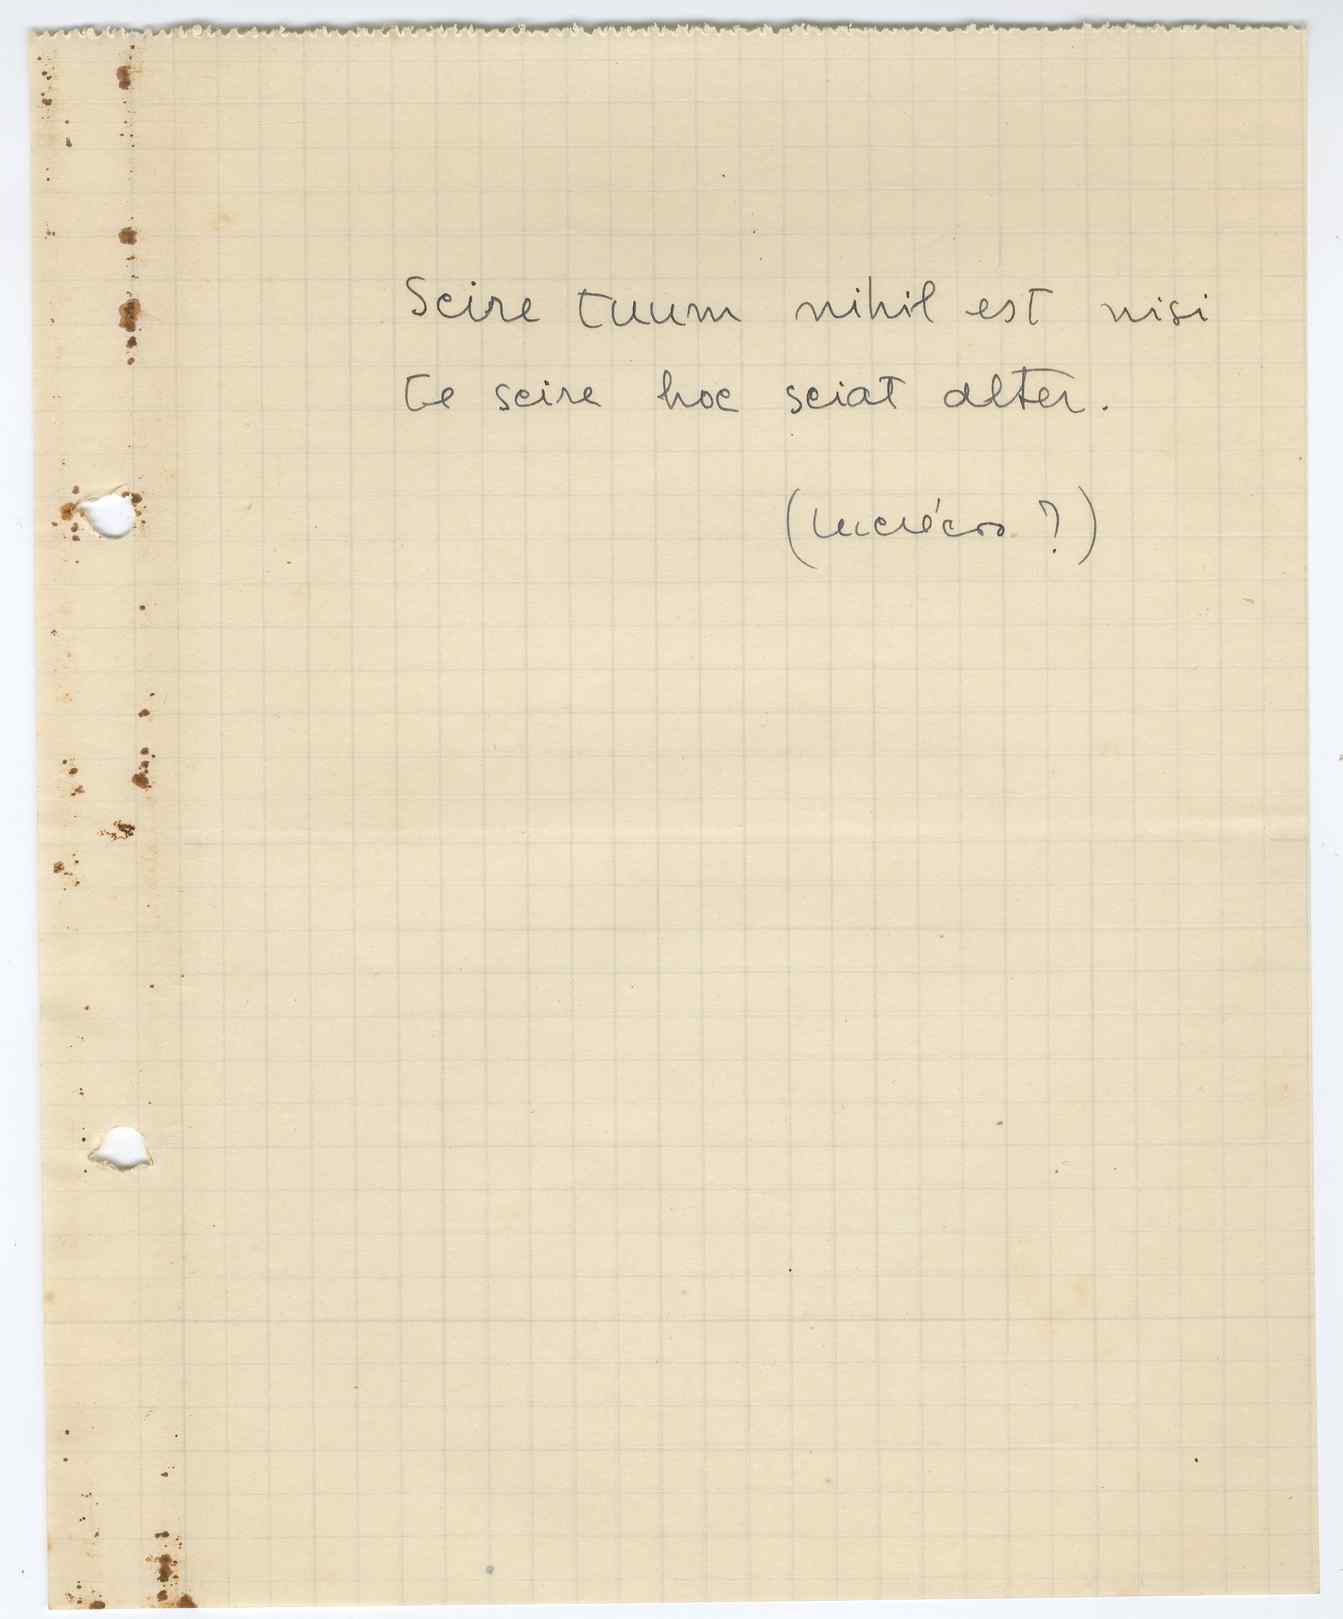 Scire tuum nihil est nisi
te scire hoc sciat alter.
(Lucrécio ?)